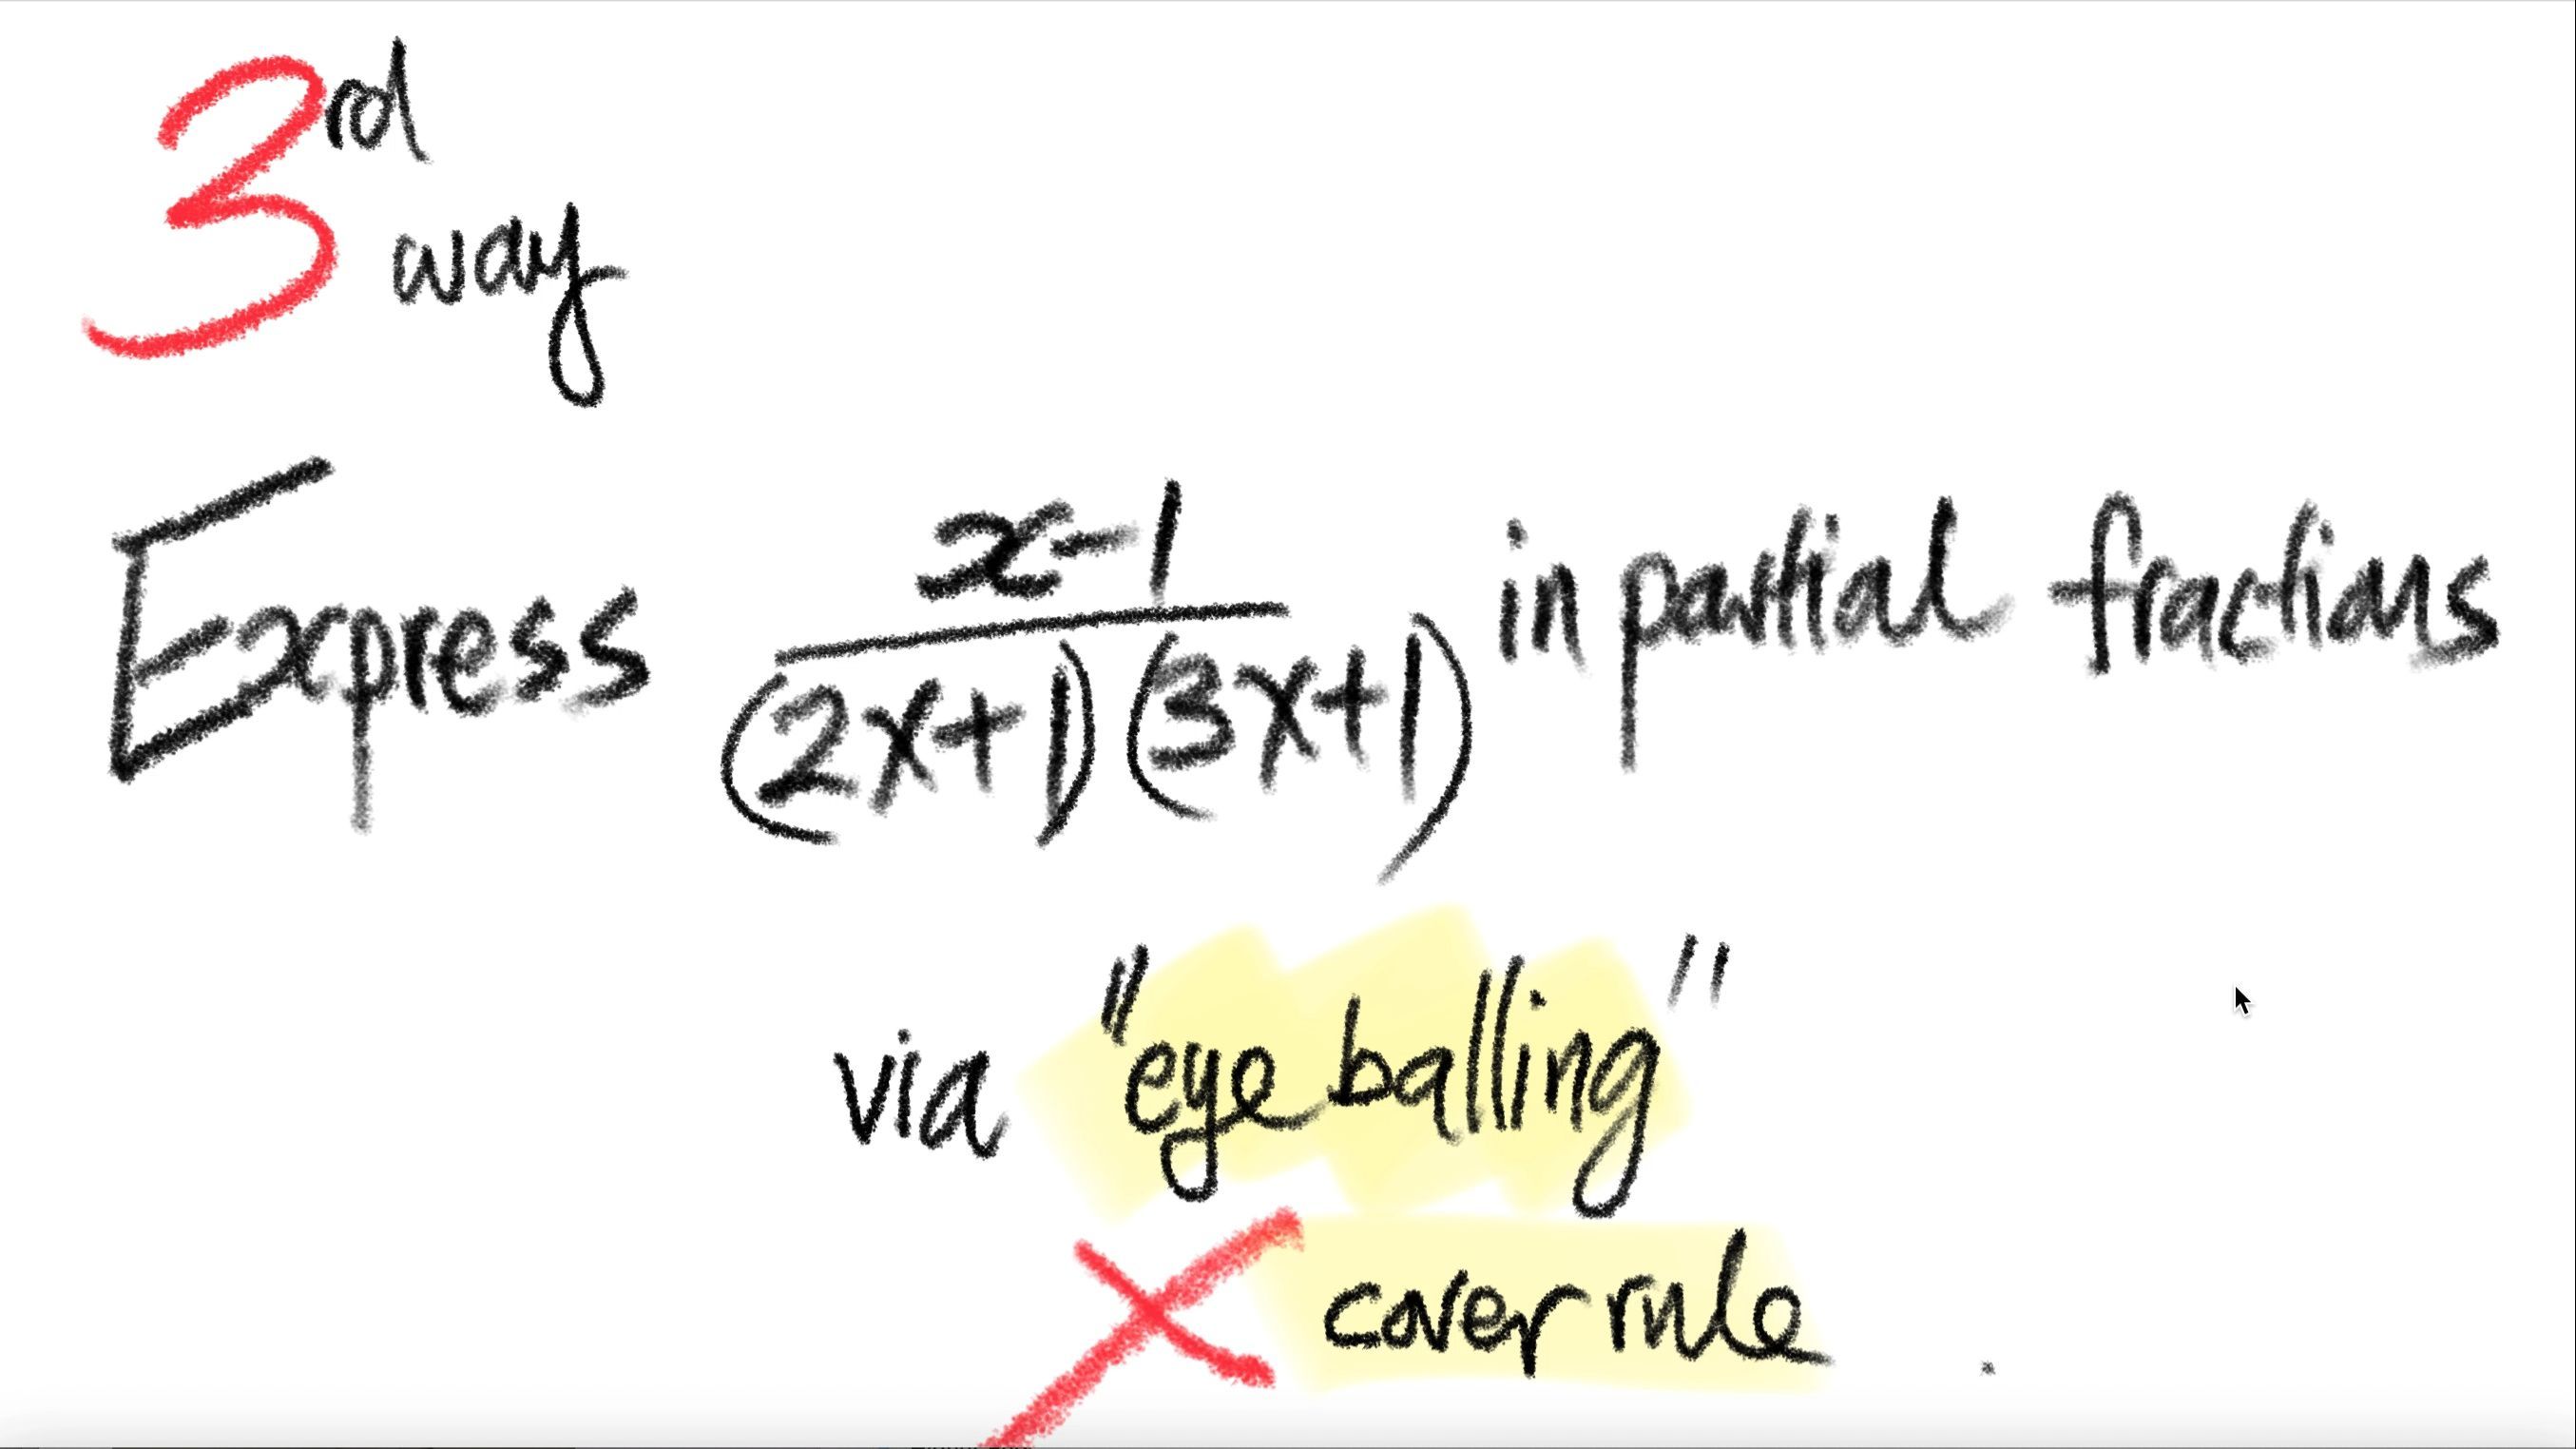 3rd
way
Express x-1/(2x+1)(3x+1) in partial fractions
via "eye balling"
X cover rule.